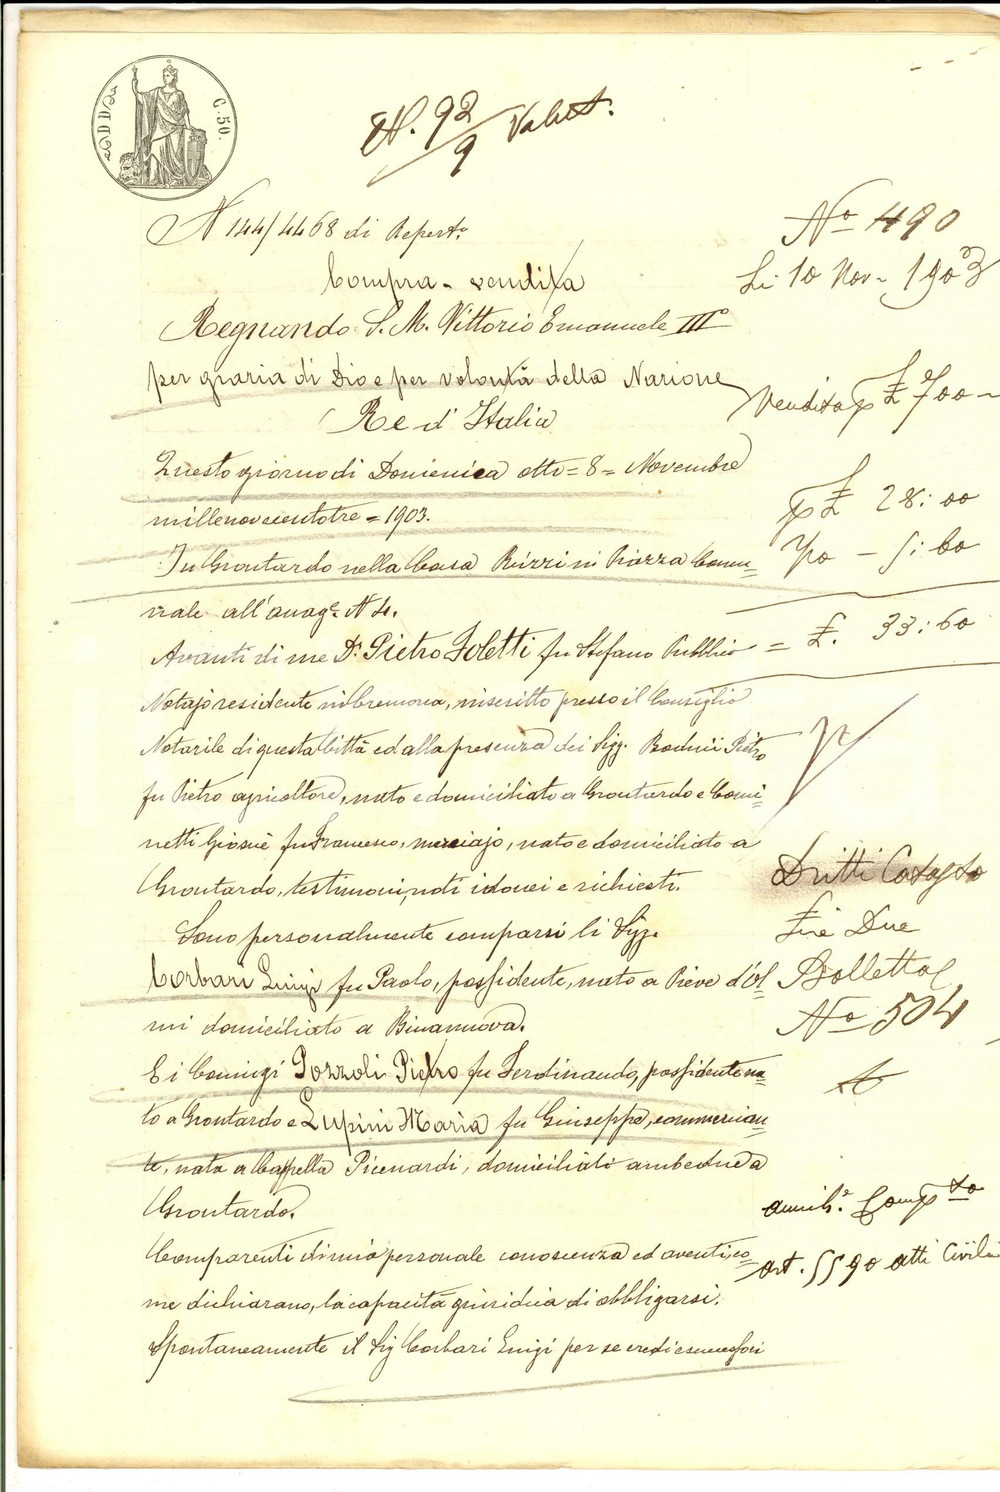 C. 50.
N 144/4468 di Repert.º
Compra - vendita
Regnando S. M. Vittorio Emanuele IIIº
per grazia di Dio e per volontà della Nazione
Re d'Italia
Questo giorno di Domenica otto = 8 = Novembre
millenovecentotre = 1903.
In Grontardo nella Casa Rizzi in Piazza Comu=
nale all'anagº N 4.
Avanti di me Dr. Pietro Foletti fu Stefano Pubblico
Notajo residente in Cremona, inscritto presso il Consiglio
Notarile di questa Città ed alla presenza dei Sigg. Pietro
fu Pietro agricoltore, nato e domiciliato a Grontardo e Comi=
netti Giosuè fu Francesco, nato e domiciliato a
Grontardo, testimoni, noti idonei e richiesti.
Sono personalmente comparsi li Sigg.
Corbari Luigi fu Paolo, possidente, nato a Pieve d'Ol=
mi domiciliato a Binanuova.
E i Coniugi Pozzoli Pietro fu Ferdinando, possidente na=
to a Grontardo e Lupini Maria fu Giuseppe, commercian=
te, nata a Cappella Picenardi, domiciliati ambedue a
Grontardo.
Comparenti di mia personale conoscenza ed aventi co=
me dichiarano, la capacità giuridica di obbligarsi.
Spontaneamente il Sig Corbari Luigi per se eredi e successori
92/9
Nº 490
Li 10 Nov - 1903
Vendita £ 700 -
£ 28:00
- 5:60
= £. 33:60
Dritti Catasto
Lire Due
Bolletta
Nº 504
art. 5590 atti Civili